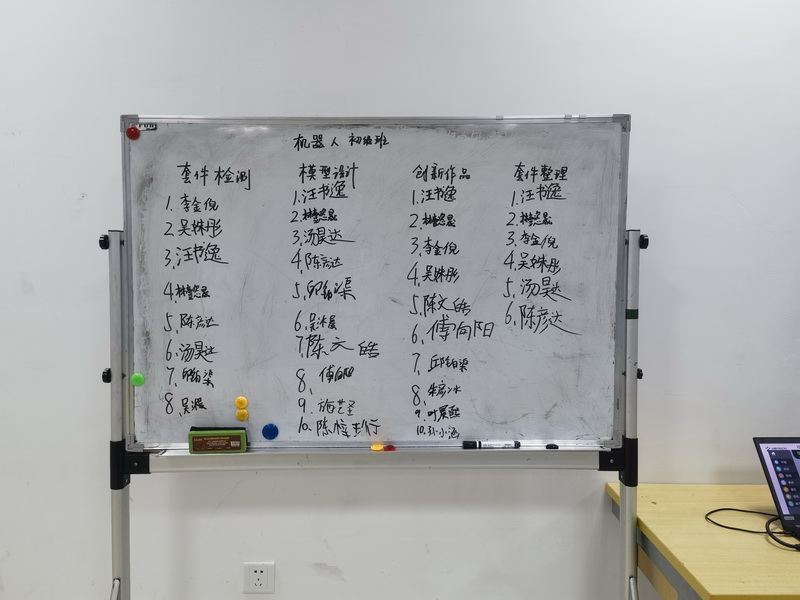 机器人 初级班
套件检测
1. 李金倪
2. 吴姝彤
3. 汪书逸
4.
5. 陈彦达
6. 汤昊达
7.
8. 吴
模型设计
1. 汪书逸
2.
3. 汤昊达
4. 陈彦达
5.
6. 吴
7. 陈文皓
8.
9. 施艺圣
10. 陈
创新作品
1. 汪书逸
2.
3. 李金倪
4. 吴姝彤
5. 陈文皓
6. 傅向阳
7.
8.
9. 叶
10. 小涵
套件整理
1. 汪书逸
2.
3. 李金倪
4. 吴姝彤
5. 汤昊达
6. 陈彦达